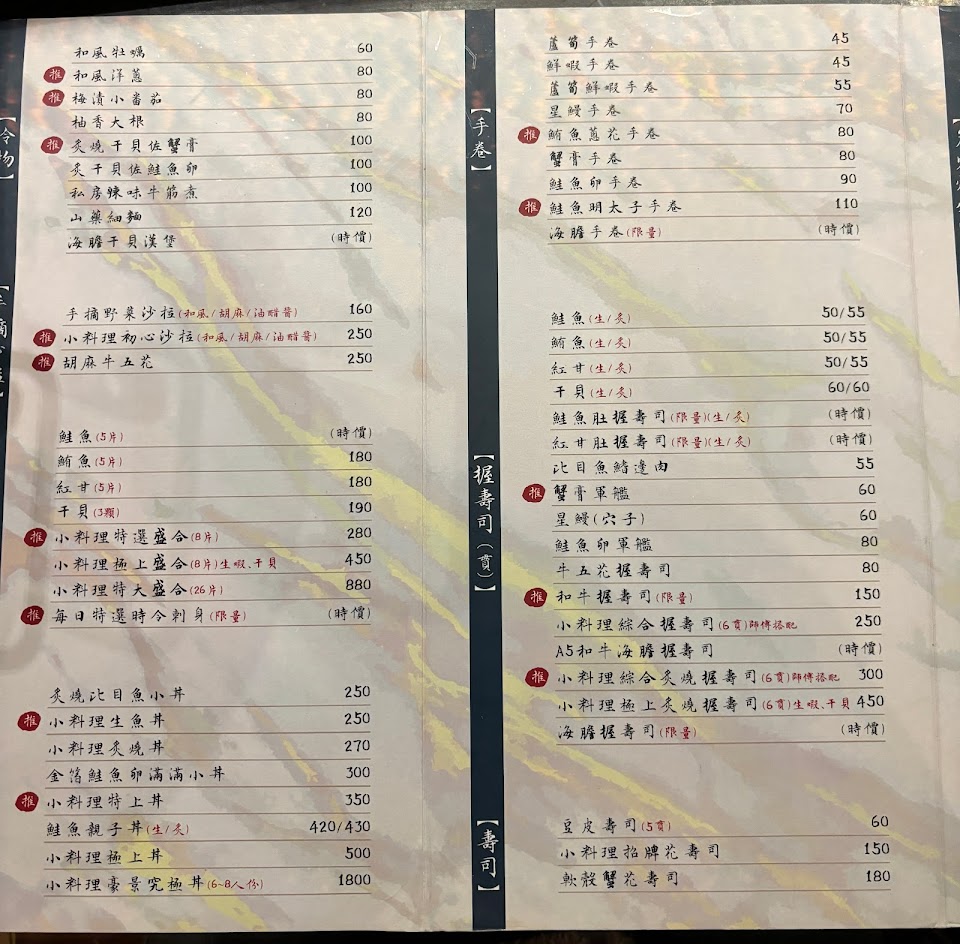 【冷物】
和風牡蠣 60
推 和風洋蔥 80
推 梅漬小番茄 80
柚香大根 80
推 炙燒干貝佐蟹膏 100
炙干貝佐鮭魚卵 100
私房辣味牛筋煮 100
山藥細麵 120
海膽干貝漢堡 (時價)
手摘野菜沙拉(和風/胡麻/油醋醬) 160
推 小料理初心沙拉(和風/胡麻/油醋醬) 250
推 胡麻牛五花 250
鮭魚(5片) (時價)
鮪魚(5片) 180
紅甘(5片) 180
干貝(3顆) 190
推 小料理特選盛合(8片) 280
小料理極上盛合(8片)生蝦、干貝 450
小料理特大盛合(26片) 880
推 每日特選時令刺身(限量) (時價)
炙燒比目魚小丼 250
推 小料理生魚丼 250
小料理炙燒丼 270
金箔鮭魚卵滿滿小丼 300
推 小料理特上丼 350
鮭魚親子丼(生/炙) 420/430
小料理極上丼 500
小料理豪景究極丼(6~8人份) 1800
【手卷】
蘆筍手卷 45
鮮蝦手卷 45
蘆筍鮮蝦手卷 55
星鰻手卷 70
推 鮪魚蔥花手卷 80
蟹膏手卷 80
鮭魚卵手卷 90
推 鮭魚明太子手卷 110
海膽手卷(限量) (時價)
【握壽司(貫)】
鮭魚(生/炙) 50/55
鮪魚(生/炙) 50/55
紅甘(生/炙) 50/55
干貝(生/炙) 60/60
鮭魚肚握壽司(限量)(生/炙) (時價)
紅甘肚握壽司(限量)(生/炙) (時價)
比目魚鰭邊肉 55
推 蟹膏軍艦 60
星鰻(穴子) 60
鮭魚卵軍艦 80
牛五花握壽司 80
推 和牛握壽司(限量) 150
小料理綜合握壽司(6貫)師傅搭配 250
A5和牛海膽握壽司 (時價)
推 小料理綜合炙燒握壽司(6貫)師傅搭配 300
小料理極上炙燒握壽司(6貫)生蝦、干貝 450
海膽握壽司(限量) (時價)
【壽司】
豆皮壽司(5貫) 60
小料理招牌花壽司 150
軟殼蟹花壽司 180